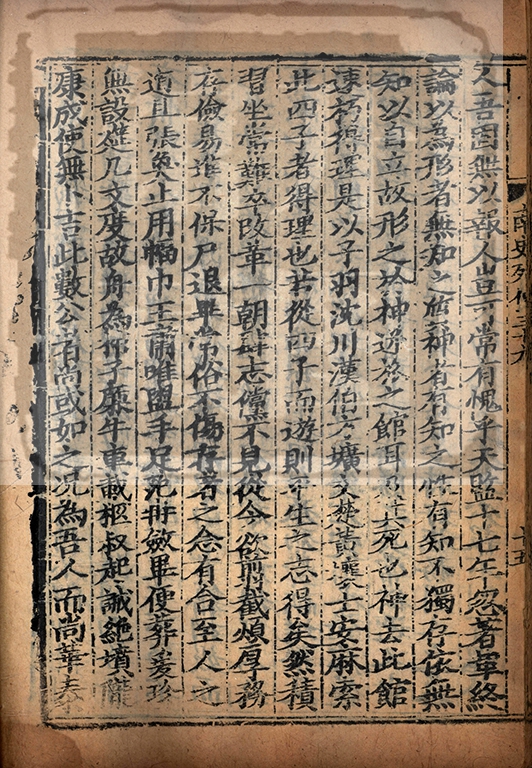 人吾固無以報人豈可常有愧乎天監十七年忽著革終
論以為形者無知之質神者有知之性有知不獨存依無
知以自立故形之於神逆旅之館耳及其死也神去此館
速朽得運是以子羽沈川漢伯方壙文楚黃壤士安麻索
此四子者得理也若從四子而遊則平生之志得矣然積
習坐常難卒改革一朝肆志儻不見從今欲翦截煩厚務
存儉易進不保尸退異常俗不傷存者之念有合至人之
道且張奐止用幅巾王肅唯盥手足范冉斂畢便葬爰珍
無設筵几文度故舟為棺子廉牛車載柩叔起誡絕墳隴
康成使無卜吉此數公者尚或如之況為吾人而尚華泰